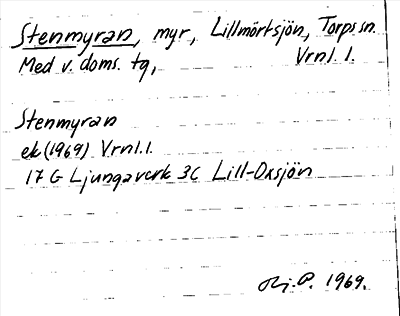 Stenmyran, myr, Lillmörtsjön, Torps sn.
Med v. doms. tg, Vrnl. l.
Stenmyran
ek (1969) Vrnl. l.
17 G Ljungaverk 3c Lill-Oxsjön
P. 1969.